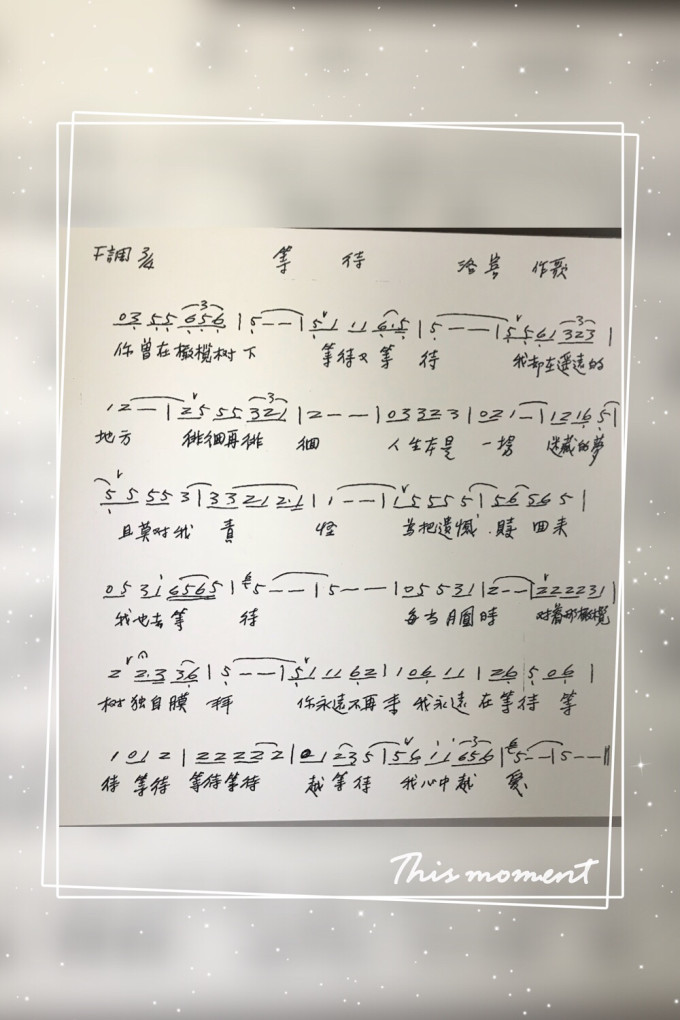 F調 3/4 等 待 洛兽 作歌
03 55 656 | 5 - - | 51 11 65 | 5 - - | 5561 323 |
你曾在橄欖树下 等待又等 待 我却在遥远的
12 - | 25 55 321 | 2 - - | 03 32 3 | 02 1 - | 12 16 5 |
地方 徘徊再徘 徊 人生本是 一場 迷藏的夢
5 5 55 3 | 33 21 2·1 | 1 - - | 15 55 5 | 56 56 5 |
且莫对我 責 怪 為把遺憾 贖 回来
05 31 6565 | 5 - - | 5 - - | 05 5 31 | 2 - - | 22 22 31 |
我也去等 待 每当月圓時 对着那橄欖
2 2·3 36 | 5 - - | 51 11 62 | 1 06 11 | 26 5 06 |
树独自膜 拜 你永遠不再来 我永遠 在等待 等
1 01 2 | 22 22 2 2 | 01 23 5 | 56 11 656 | 5 - - | 5 - - ||
待 等待 等待等待 越等待 我心中越 愛
This moment